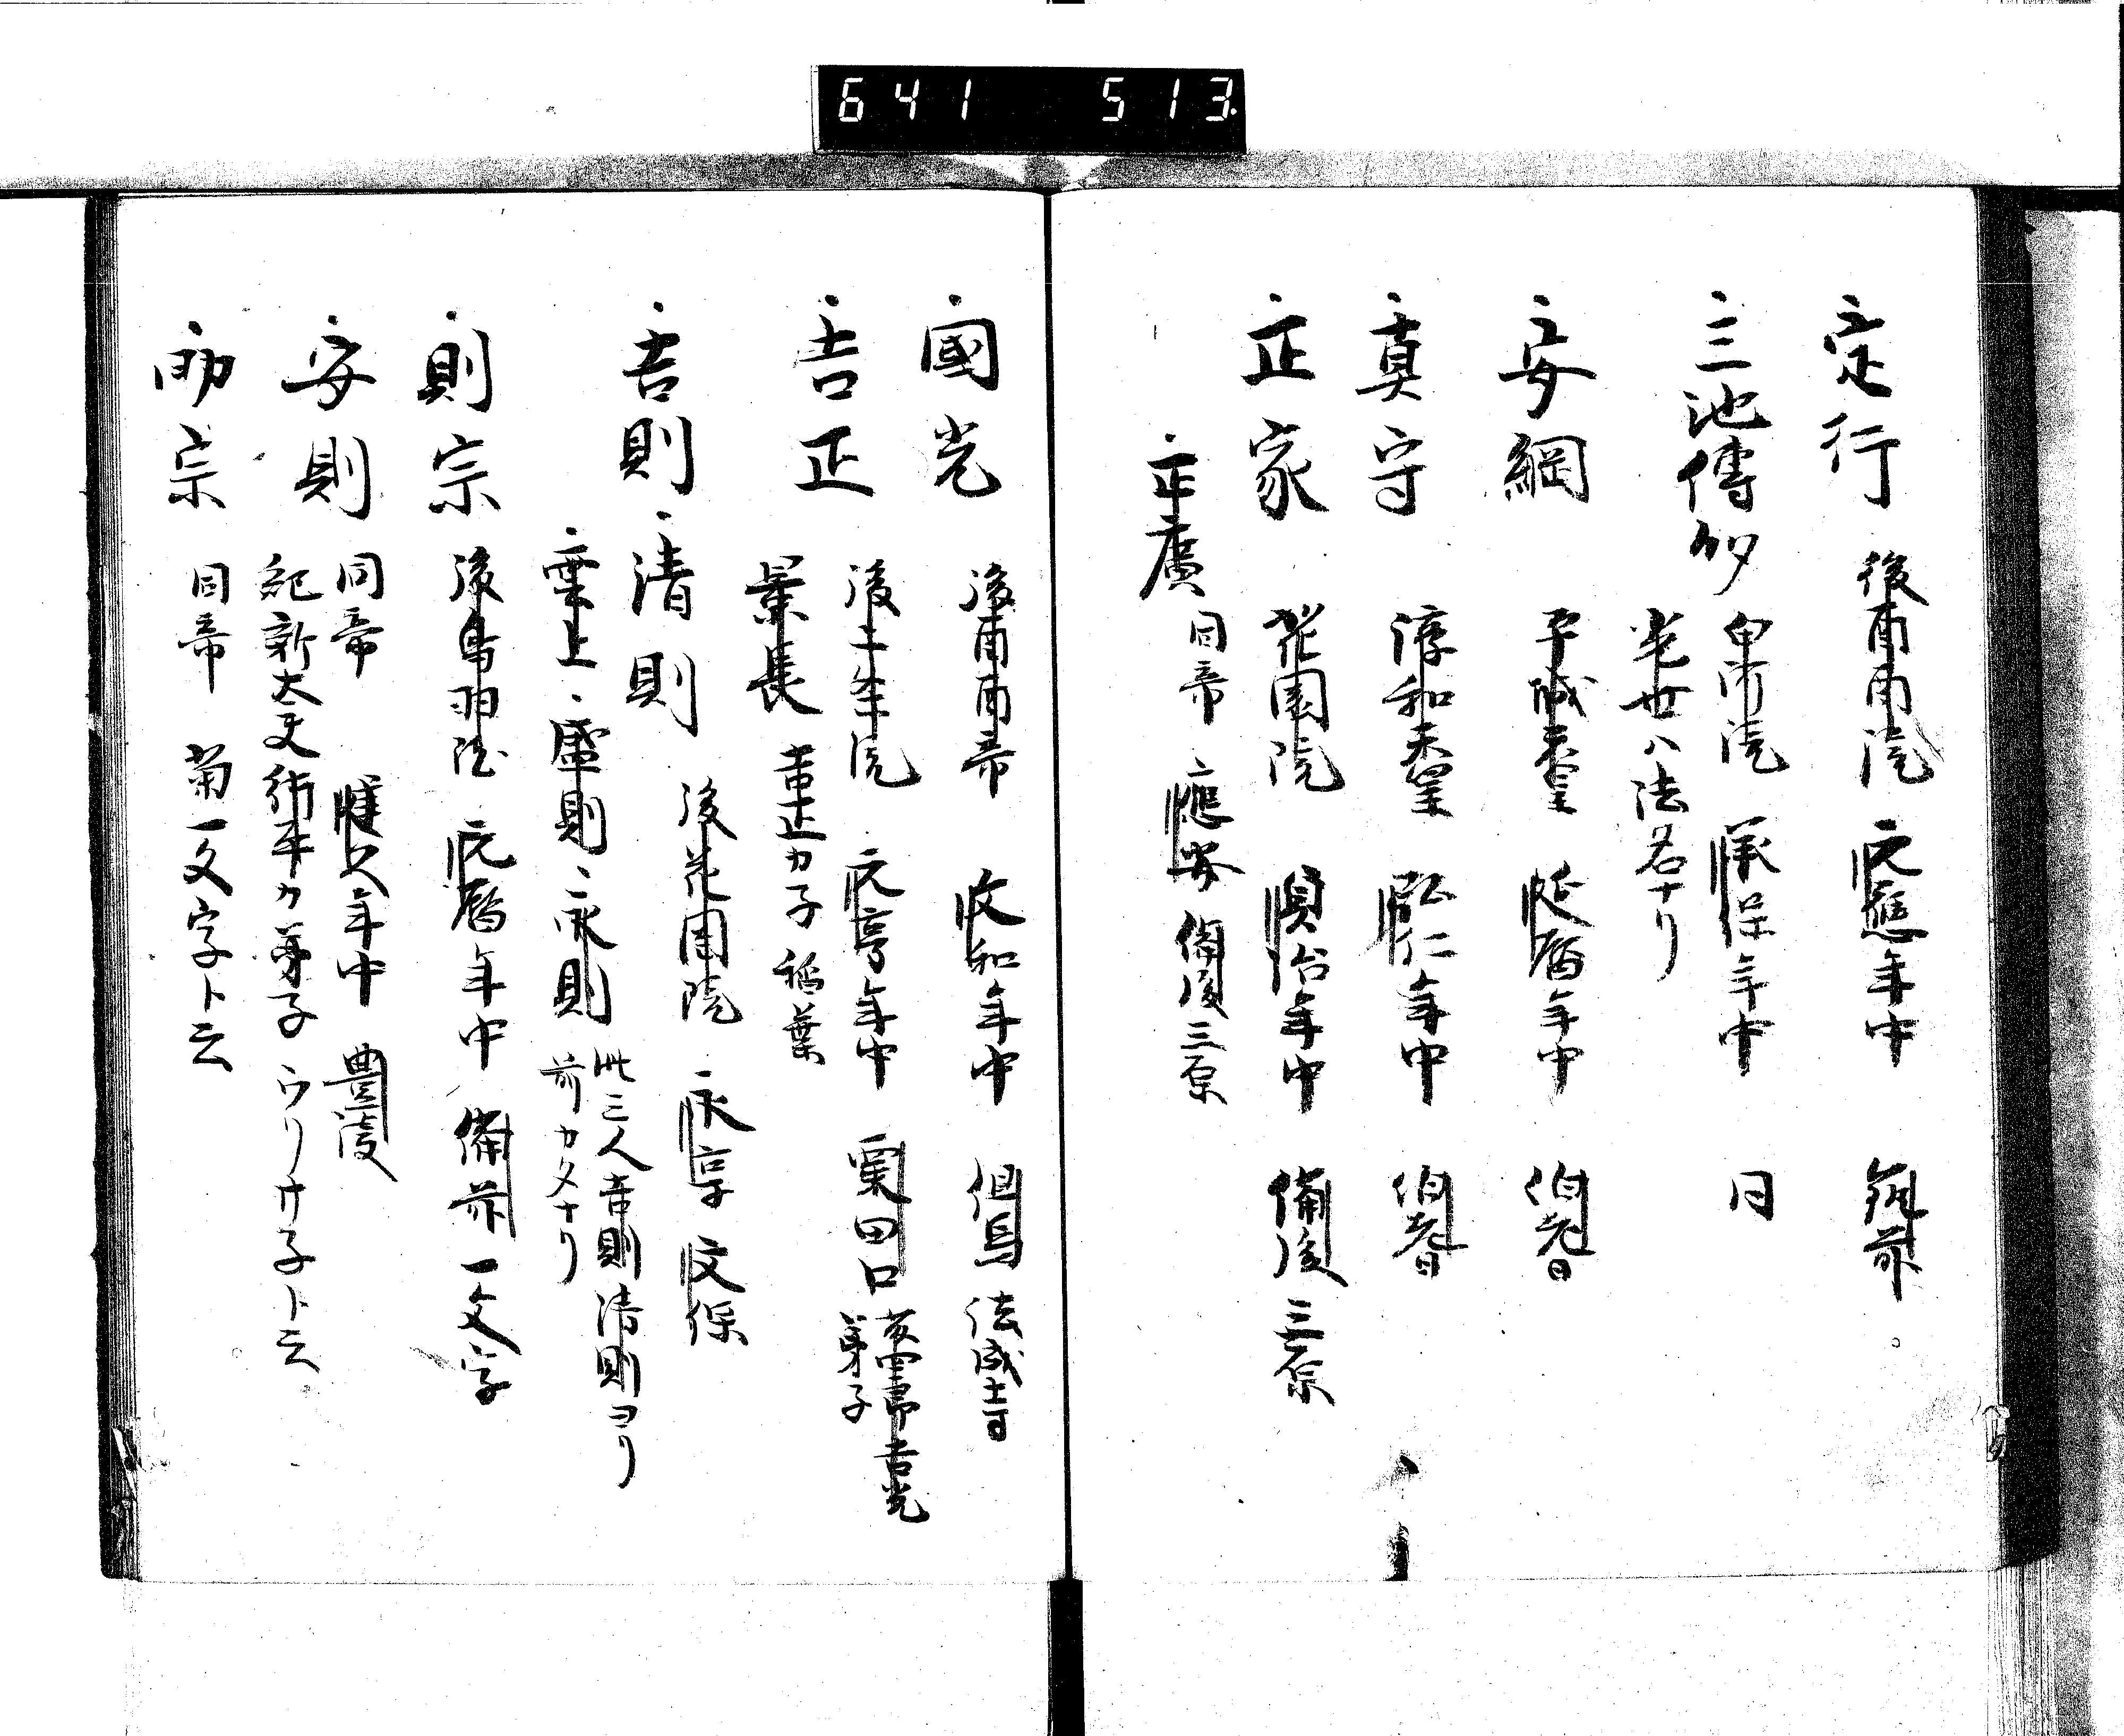 641 513
定行 後酉酉院 元應年中 筑前
三池傳多 白河院 承保年中 同
光世ハ法名ナリ
安綱 平城天皇 延暦年中 伯耆
真守 淳和天皇 弘仁年中 伯耆
正家 花園院 貞治年中 備後三原
正廣 同帝 應安 備後三原
國光 後酉酉帝 文和年中 但馬 法成寺
吉正 後二条院 元亨年中 粟田口 吉光
弟子
景長 吉正カ子 稲葉
吉則 清則 後花園院 永享 文保
上 盛則 永則 此三人吉則清則ヨリ
前カタナリ
則宗 後鳥羽院 元暦年中 備前一文字
安則 同帝 建久年中 豊後
紀新大夫行平カ弟子ウリケ子ト云
助宗 同帝 菊一文字ト云